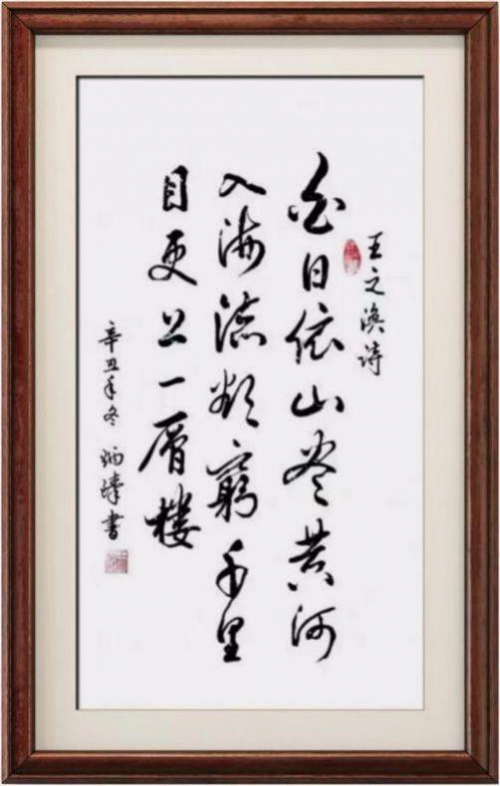 王之渙诗
白日依山尽黄河
入海流欲窮千里
目更上一層楼
辛丑年冬 炳書